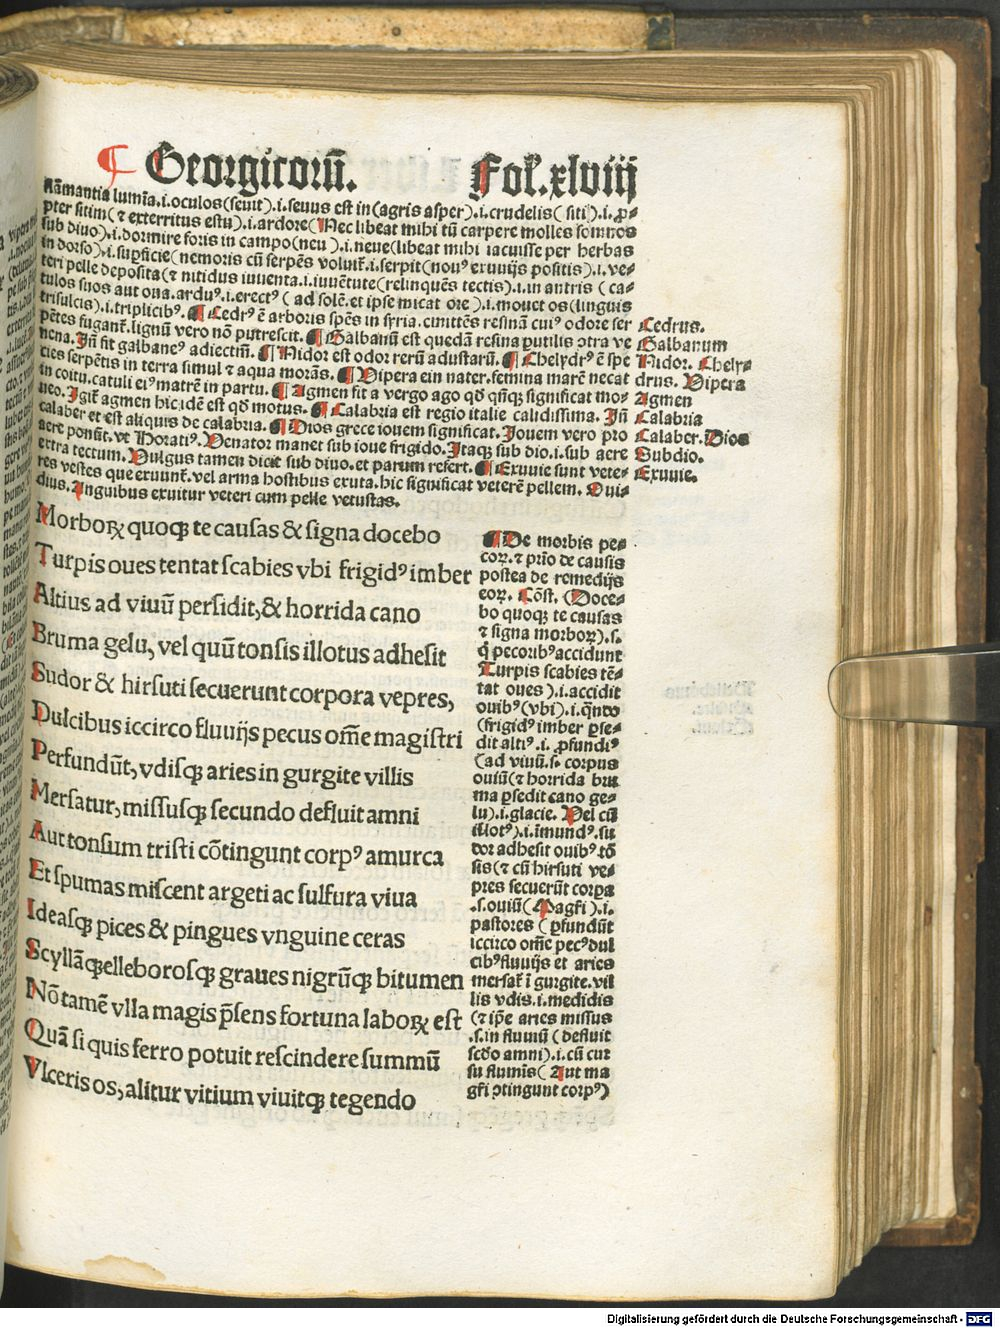 ¶ Georgicorū. Fol̄.xlviij
flāmantia lumīa.i.oculos(ſeuit).i.ſeuus eſt in(agris aſper).i.crudelis( ſiti).i.ꝓ⸗
pter ſitim(⁊ exterritus eſtu).i.ardore(Nec libeat mihi tū carpere molles ſomnos
ſub diuo).i.dormire foris in campo(neu ).i.neue(libeat mihi iacuiſſe per herbas
in dorſo).i.ſuꝑficie(nemoris cū ſerpēs voluit̄.i.ſerpit(nouꝰ exuuijs poſitis).i.ve⸗
teri pelle depoſita(⁊ nitidus iuuenta.i.iuuētute(relinquēs tectis).i.in antris ( ca⸗
tulos ſuos aut oua.arduꝰ.i.erectꝰ ( ad ſolē.et ipſe micat ore ).i.mouet os(linguis
triſulcis).i.triplicibꝰ. ¶ Cedrꝰ ē arboris ſpēs in ſyria.emittēs reſinā cuiꝰ odore ſer Cedrus.
pētes fugant̄.lignū vero nō putreſcit. ¶ Galbanū eſt quedā reſina putilis ↄtra ve Galbanum
nena.Iñ fit galbaneꝰ adiectiū. ¶ Nidor eſt odor rerū aduſtarū. ¶ Chelydrꝰ ē ſpe Nidor. Chely⸗
cies ſerpētis in terra ſimul ⁊ aqua morās. ¶ Vipera ein nater.femina marē necat drus. Vipera
in coitu.catuli eiꝰ matrē in partu. ¶ Agmen fit a vergo ago qð qñqꝫ ſignificat mo⸗ Agmen
ueo.Igit̄ agmen hic idē eſt qð motus. ¶ Calabria eſt regio italie calidiſſima. Iñ Calabria
calaber et eſt aliquis de calabria. ¶ Dios grece iouem ſignificat.Iouem vero pro Calaber.Dios
aere ponūt.vt Horatiꝰ.Venator manet ſub ioue frigido.Itaqꝫ ſub dio.i.ſub aere Subdio.
extra tectum.Vulgus tamen dicit ſub diuo.et parum refert. ¶ Exuuie ſunt vete⸗ Exuuie.
res veſtes que exuunt̄.vel arma hoſtibus exuta.hic ſignificat veterē pellem. Oui⸗
dius.Anguibus exuitur veteri cum pelle vetuſtas.
Morboꝝ quoqꝫ te cauſas & ſigna docebo
Turpis oues tentat ſcabies vbi frigidꝰ imber
Altius ad viuū perſidit,& horrida cano
Bruma gelu, vel quū tonſis illotus adheſit
Sudor & hirſuti ſecuerunt corpora vepres,
Dulcibus iccirco fluuijs pecus om̄e magiſtri
Perfundūt, vdiſqꝫ aries in gurgite villis
Merſatur, miſſuſqꝫ ſecundo defluit amni
Aut tonſum triſti cōtingunt corpꝰ amurca
Et ſpumas miſcent argeti ac ſulfura viua
Ideaſqꝫ pices & pingues vnguine ceras
Scyllāqꝫelleboroſqꝫ graues nigrūqꝫ bitumen
Nō tamē vlla magis p̄ſens fortuna laboꝝ eſt
Quā ſi quis ferro potuit reſcindere ſummū
Vlceris os, alitur vitium viuitqꝫ tegendo
¶ De morbis pe⸗
coꝝ.⁊ prīo de cauſis
poſtea de remedijs
eoꝝ. Cōſt. (Doce⸗
bo quoqꝫ te cauſas
⁊ ſigna morboꝝ).ſ.
q̄ pecoribꝰaccidunt
Turpis ſcabies tē⸗
tat oues ).i.accidit
ouibꝰ(vbi).i.qn̄to
(frigidꝰ imber ꝑſe⸗
dit altiꝰ.i. ꝓfundiꝰ
(ad viuū.ſ. corpus
ouiū(⁊ horrida bru
ma ꝑſedit cano ge⸗
lu).i.glacie. Vel cū
illotꝰ).i.īmundꝰ.ſu
dor adheſit ouibꝰ.tō
ſis(⁊ cū hirſuti ve⸗
pres ſecuerūt corꝑa
.ſ.ouiū(Magr̄i).i.
paſtores ( ꝑfundūt
iccirco om̄e pecꝰdul
cibꝰfluuijs et aries
merſat̄ ī gurgite.vil
lis vdis.i.medidis
(⁊ ip̄e aries miſſus
.ſ.in fluuiū ( defluit
ſcdo amni).i.cū cur
ſu flumīs( Aut ma
gr̄i ↄtingunt corpꝰ)
Digitalisierung gefördert durch die Deutsche Forschungsgemeinschaft - DFG